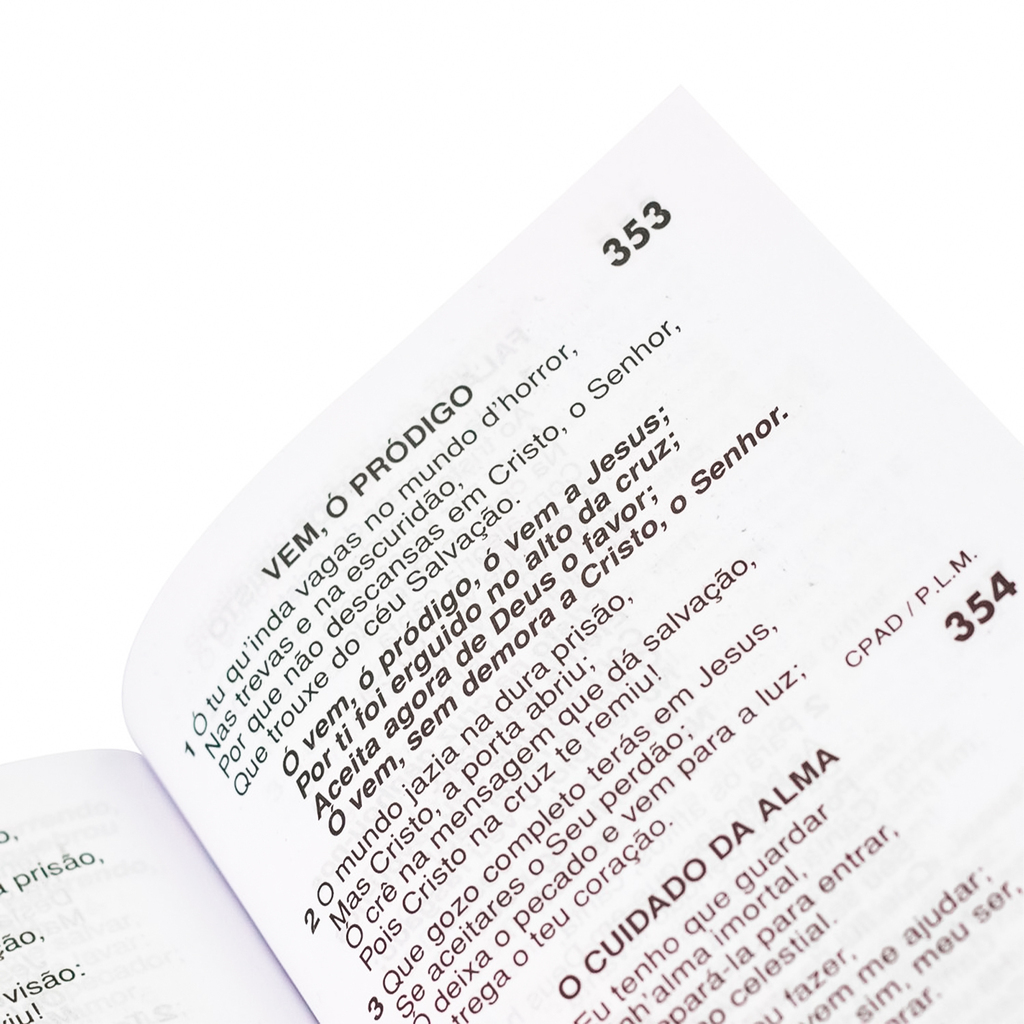 prisão,
visão:
353
VEM, Ó PRÓDIGO
1 Ó tu qu'inda vagas no mundo d'horror,
Nas trevas e na escuridão,
Por que não descansas em Cristo, o Senhor,
Que trouxe do céu Salvação.
Ó vem, ó pródigo, ó vem a Jesus;
Por ti foi erguido no alto da cruz;
Aceita agora de Deus o favor;
Ó vem, sem demora a Cristo, o Senhor.
2 O mundo jazia na dura prisão,
Mas Cristo, a porta abriu;
O crê na mensagem que dá salvação,
Pois Cristo na cruz te remiu!
3 Que gozo completo terás em Jesus,
Se aceitares o Seu perdão;
Ó deixa o pecado e vem para a luz;
trega o teu coração.
CPAD / P.L.M.
354
O CUIDADO DA ALMA
Eu tenho que guardar
nh'alma imortal,
epará-la para entrar,
o celestial.
fazer,
vem me ajudar;
sim, meu ser,